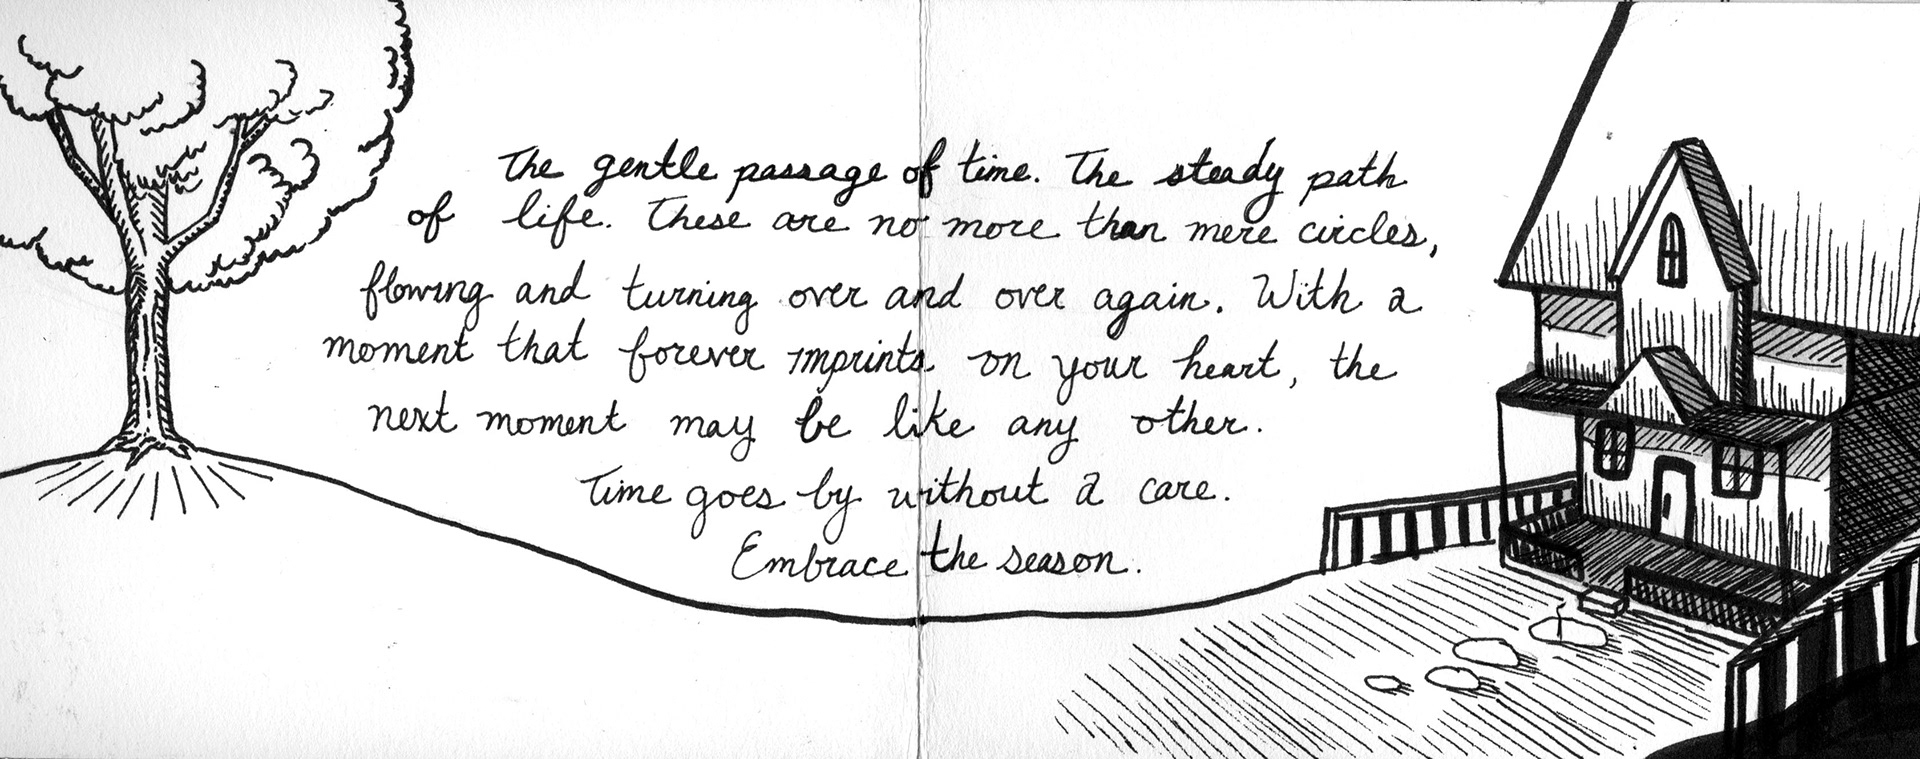 The gentle passage of time. The steady path
of life. These are no more than mere circles,
flowing and turning over and over again. With a
moment that forever imprints on your heart, the
next moment may be like any other.
Time goes by without a care.
Embrace the season.